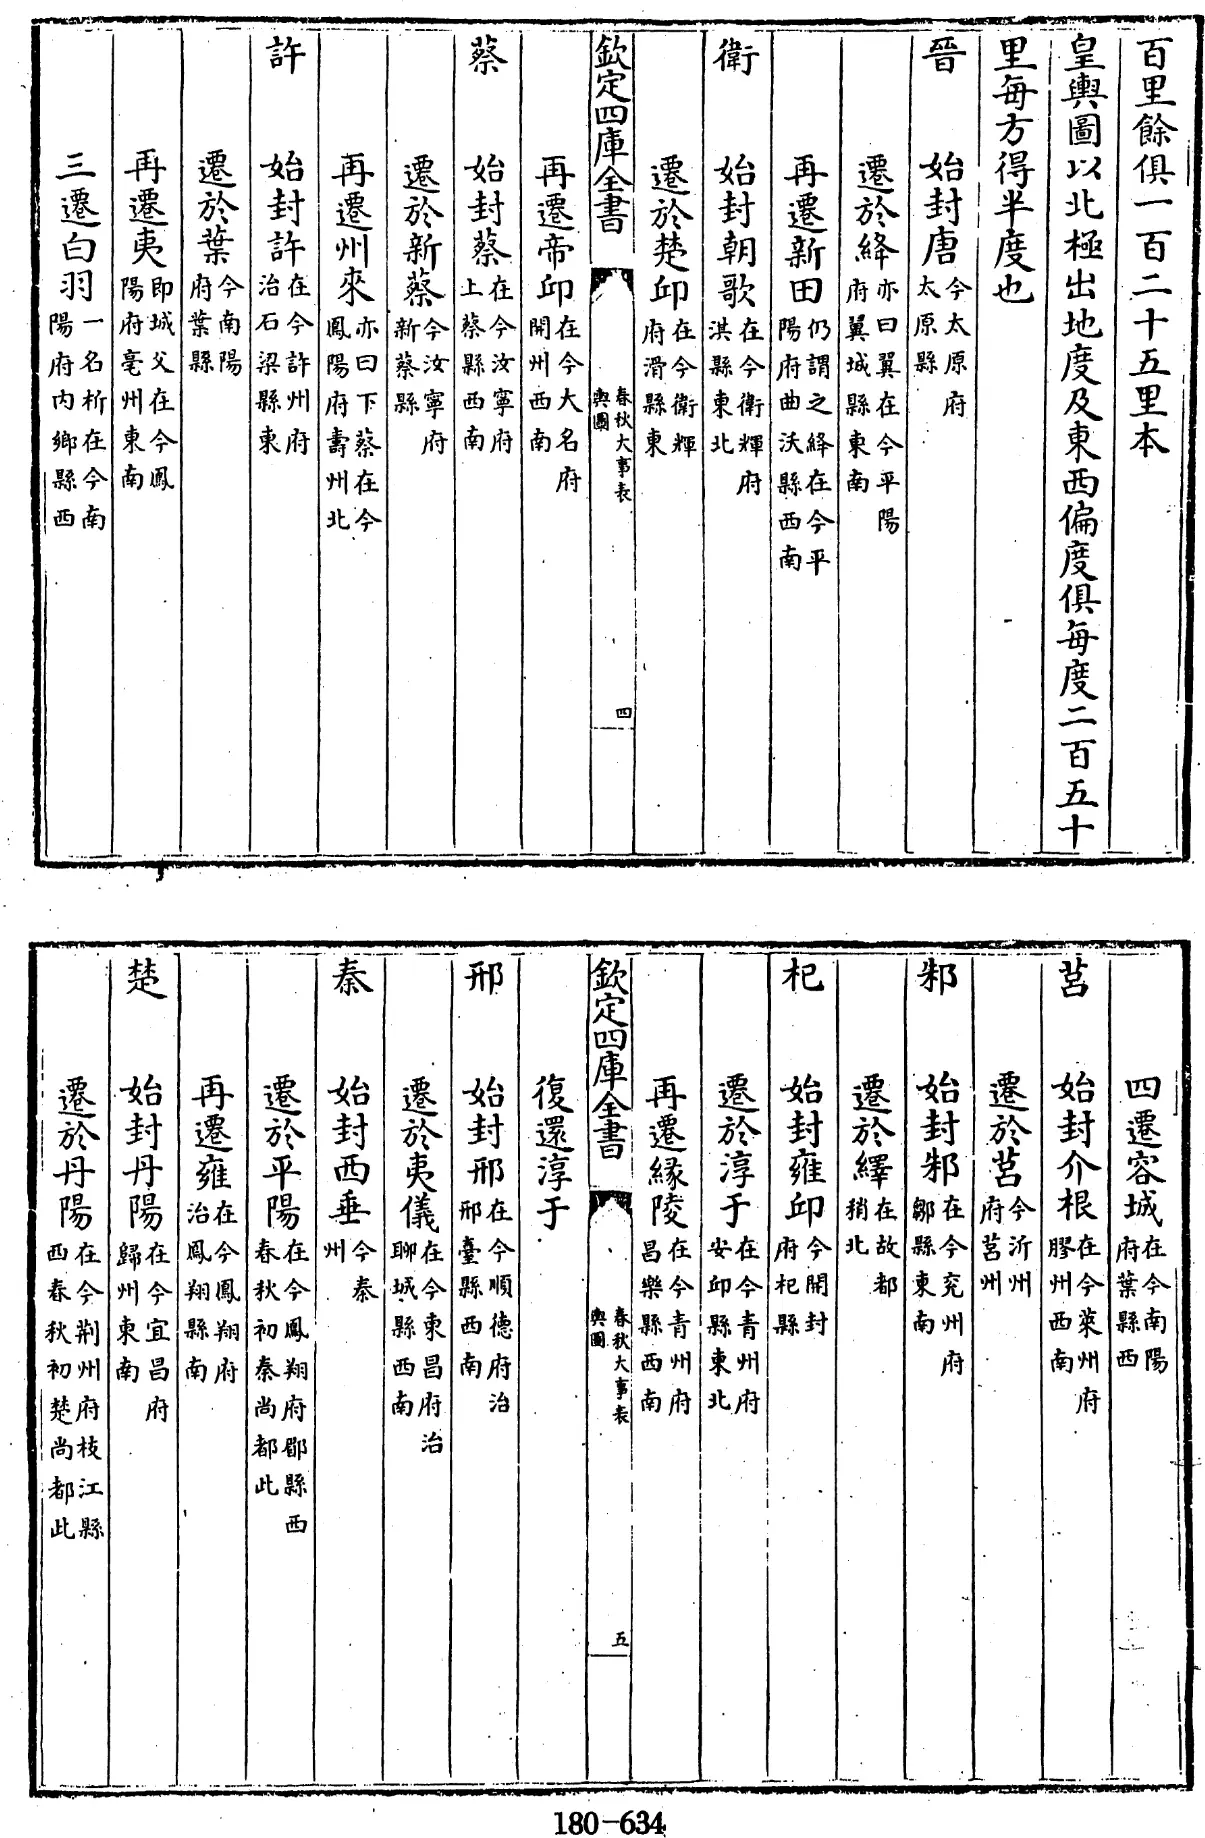 百里餘俱一百二十五里本
皇輿圖以北極出地度及東西偏度俱每度二百五十
里每方得半度也
晉
始封唐今太原府太原縣
遷於絳亦曰翼在今平陽府翼城縣東南
再遷新田仍謂之絳在今平陽府曲沃縣西南
衛
始封朝歌在今衛輝府淇縣東北
遷於楚邱在今衛輝府滑縣東
欽定四庫全書
春秋大事表
輿圖
四
再遷帝邱在今大名府開州西南
蔡
始封蔡在今汝寧府上蔡縣西南
遷於新蔡今汝寧府新蔡縣
再遷州來亦曰下蔡在今鳳陽府壽州北
許
始封許在今許州府治石梁縣東
遷於葉今南陽府葉縣
再遷夷即城父在今鳳陽府亳州東南
三遷白羽一名析在今南陽府内鄉縣西
四遷容城在今南陽府葉縣西
莒
始封介根在今萊州府膠州西南
遷於莒今沂州府莒州
邾
始封邾在今兖州府鄒縣東南
遷於繹在故都稍北
杞
始封雍邱今開封府杞縣
遷於淳于在今青州府安邱縣東北
再遷緣陵在今青州府昌樂縣西南
欽定四庫全書
春秋大事表
輿圖
五
復還淳于
邢
始封邢在今順德府治邢臺縣西南
遷於夷儀在今東昌府治聊城縣西南
秦
始封西垂今秦州
遷於平陽在今鳳翔府郿縣西春秋初秦尚都此
再遷雍在今鳳翔府治鳳翔縣南
楚
始封丹陽在今宜昌府歸州東南
遷於丹陽在今荆州府枝江縣西春秋初楚尚都此
180-634